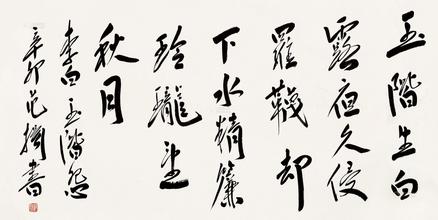 玉階生白
露夜久侵
羅韈却
下水精簾
玲瓏望
秋月
李白玉階怨
辛卯范揚書